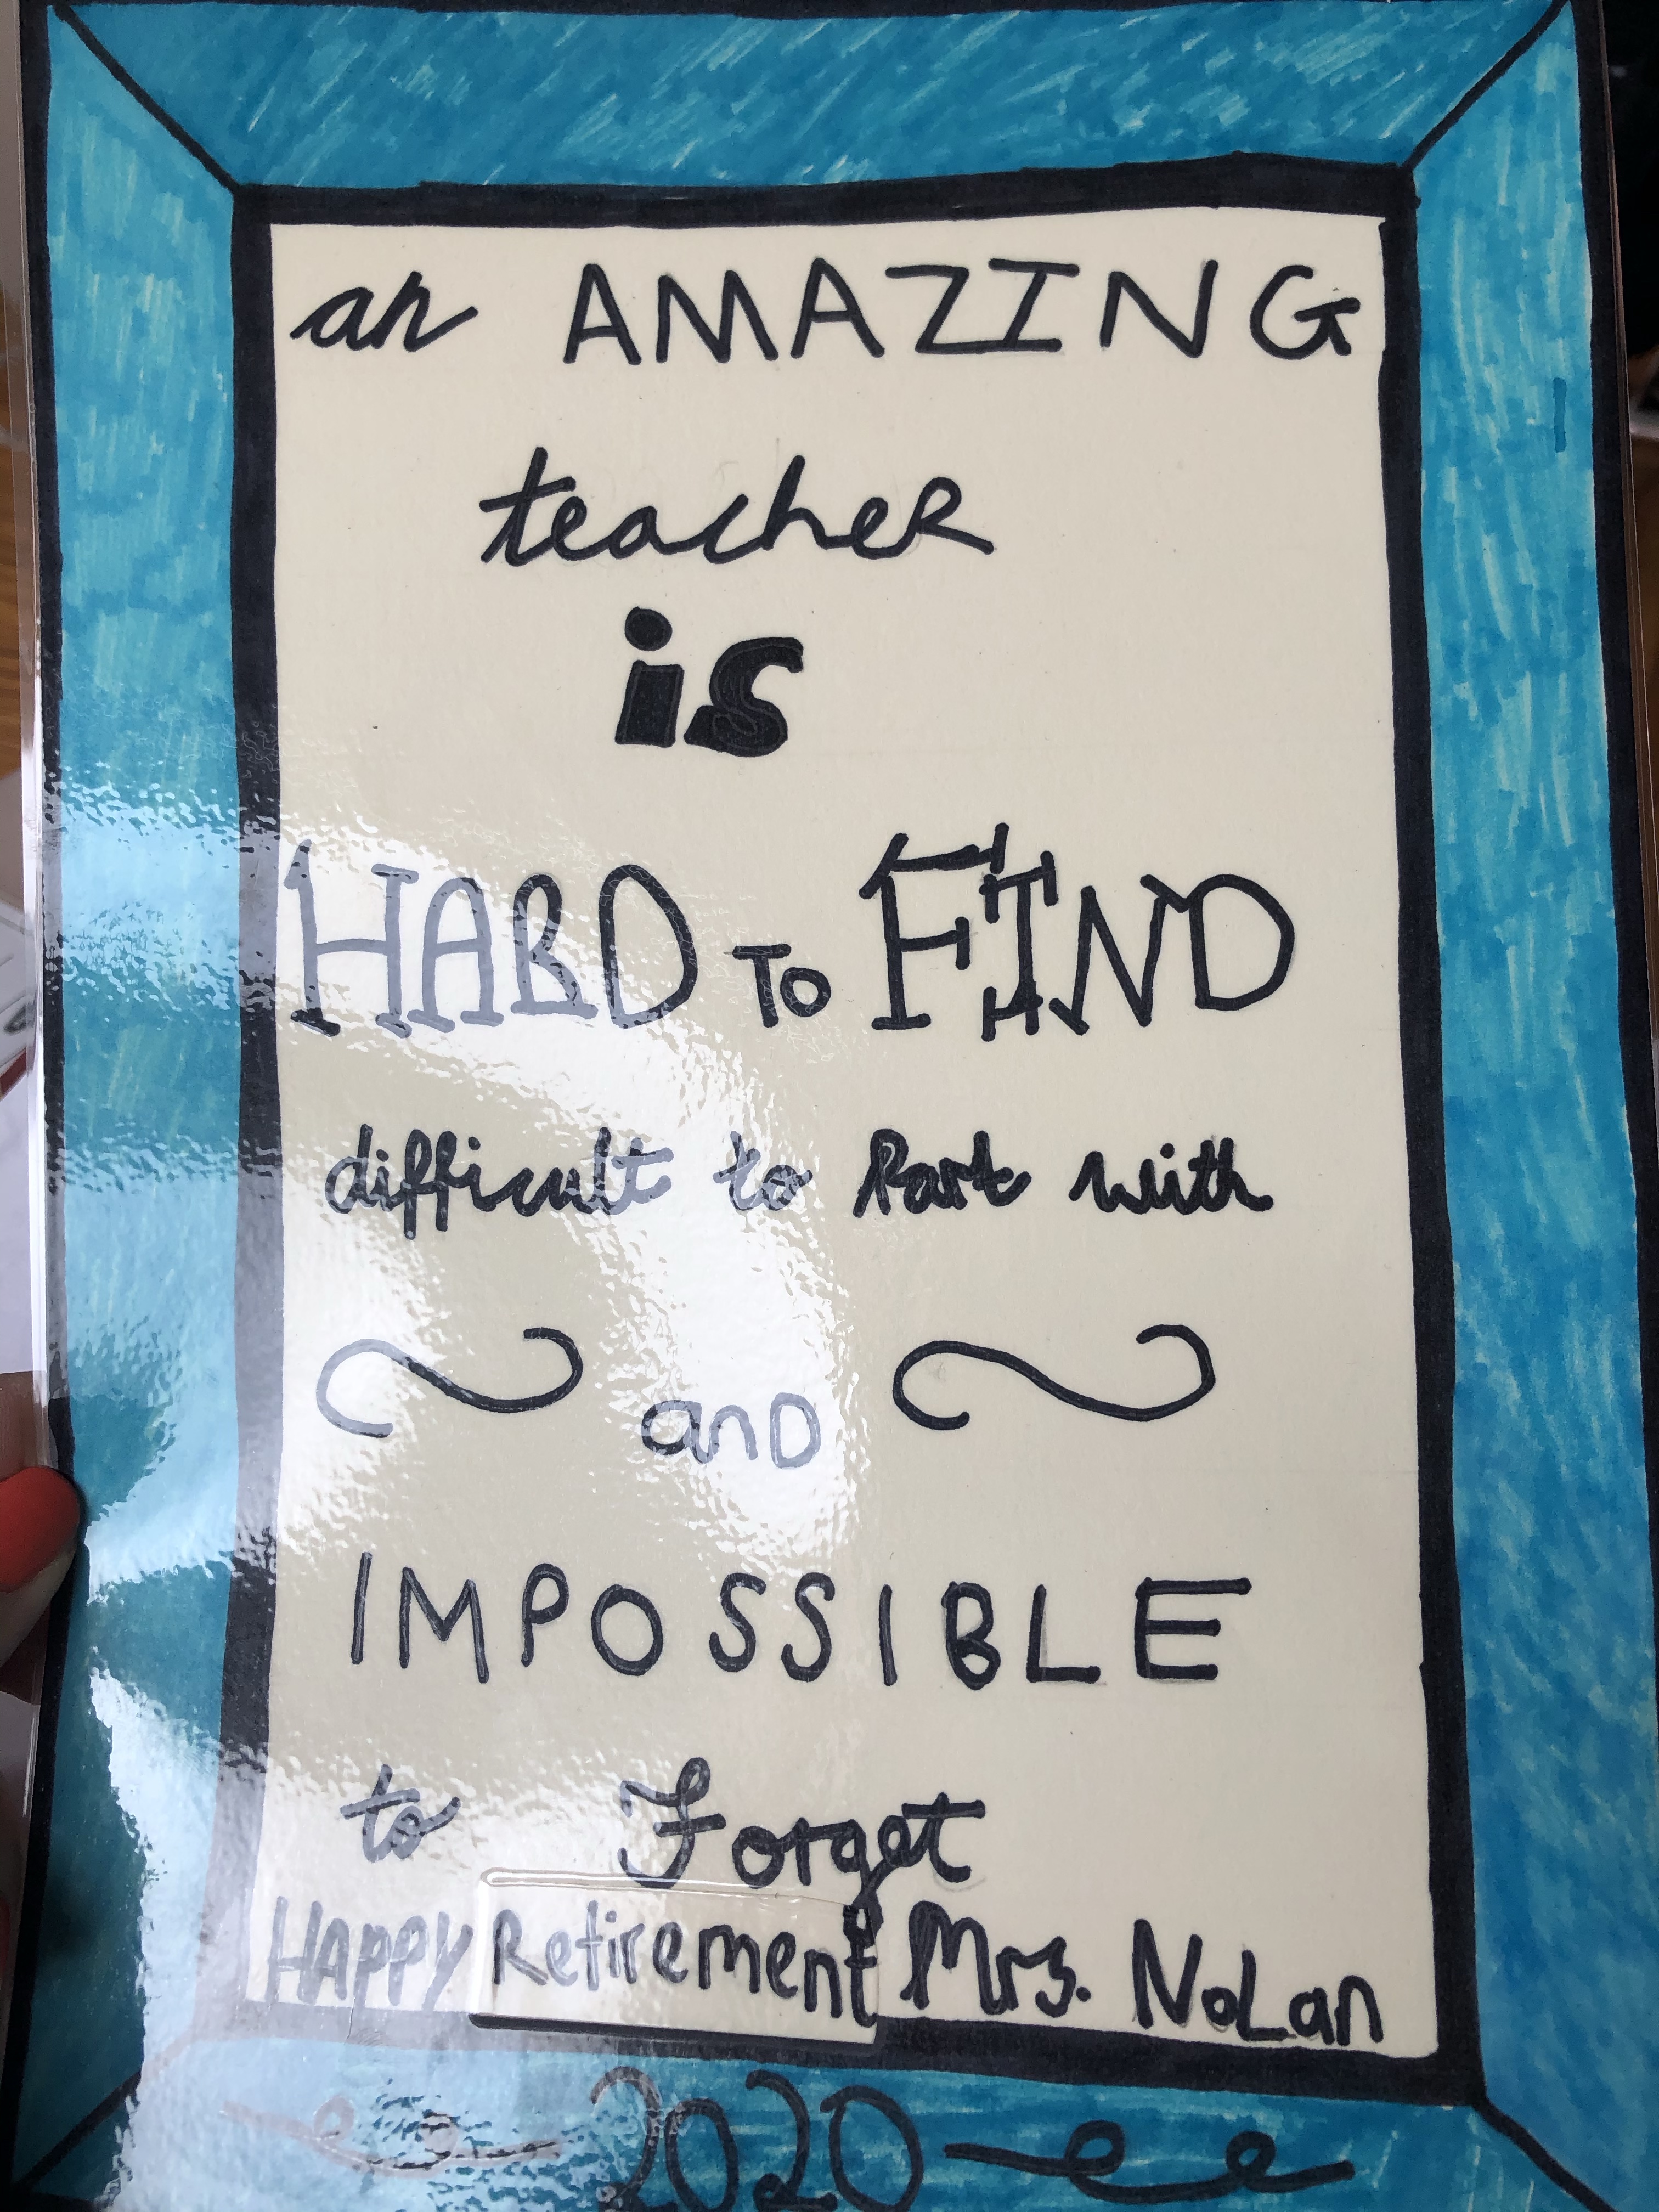 an AMAZING
teacheR
is
HARD To FIND
difficult to Part with
anD
IMPOSSIBLE
to Forget
HAPPY Retirement Mrs. NoLan
2020